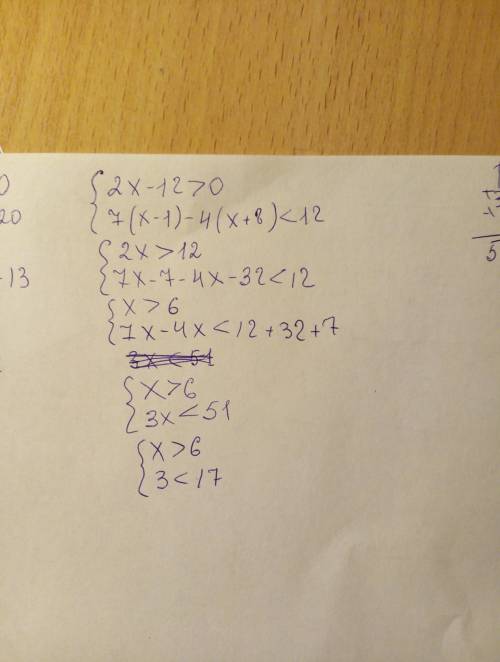 {2x-12>0
{7(x-1)-4(x+8)<12
{2x>12
{7x-7-4x-32<12
{x>6
{7x-4x<12+32+7
3x<51
{x>6
{3x<51
{x>6
{3<17
0
20
-13
5